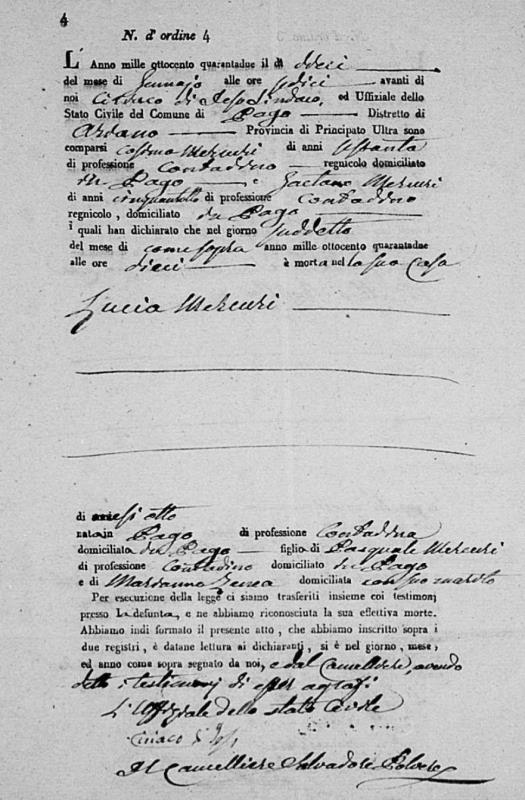 4
N. d' ordine 4
L' Anno mille ottocento quarantadue il dì dieci
del mese di Gennajo alle ore sedici avanti di
noi Ciriaco di Sindaco, ed Uffiziale dello
Stato Civile del Comune di Pago Distretto di
Ariano Provincia di Principato Ultra sono
comparsi Cosimo Mercuri di anni
di professione Contadino regnicolo domiciliato
in Pago e Gaetano Mercuri
di anni cinquantotto di professione Contadino
regnicolo, domiciliato in Pago
i quali han dichiarato che nel giorno suddetto
del mese di come sopra anno mille ottocento quarantadue
alle ore dieci è morta nel la sua Casa
Lucia Mercuri
di mesi otto
nata in Pago di professione Contadina
domiciliata in Pago figlia di Pasquale Mercuri
di professione Contadino domiciliato in Pago
e di Marianna domiciliata con suo marito
Per esecuzione della legge ci siamo trasferiti insieme coi testimonj
presso La defunta, e ne abbiamo riconosciuta la sua effettiva morte.
Abbiamo indi formato il presente atto, che abbiamo inscritto sopra i
due registri, è datane lettura ai dichiaranti, si è nel giorno, mese,
ed anno come sopra segnato da noi, e dal Cancelliere, avendo
detto i testimonj di esser
L'Uffiziale dello stato Civile
Ciriaco
Il Cancelliere Salvadore